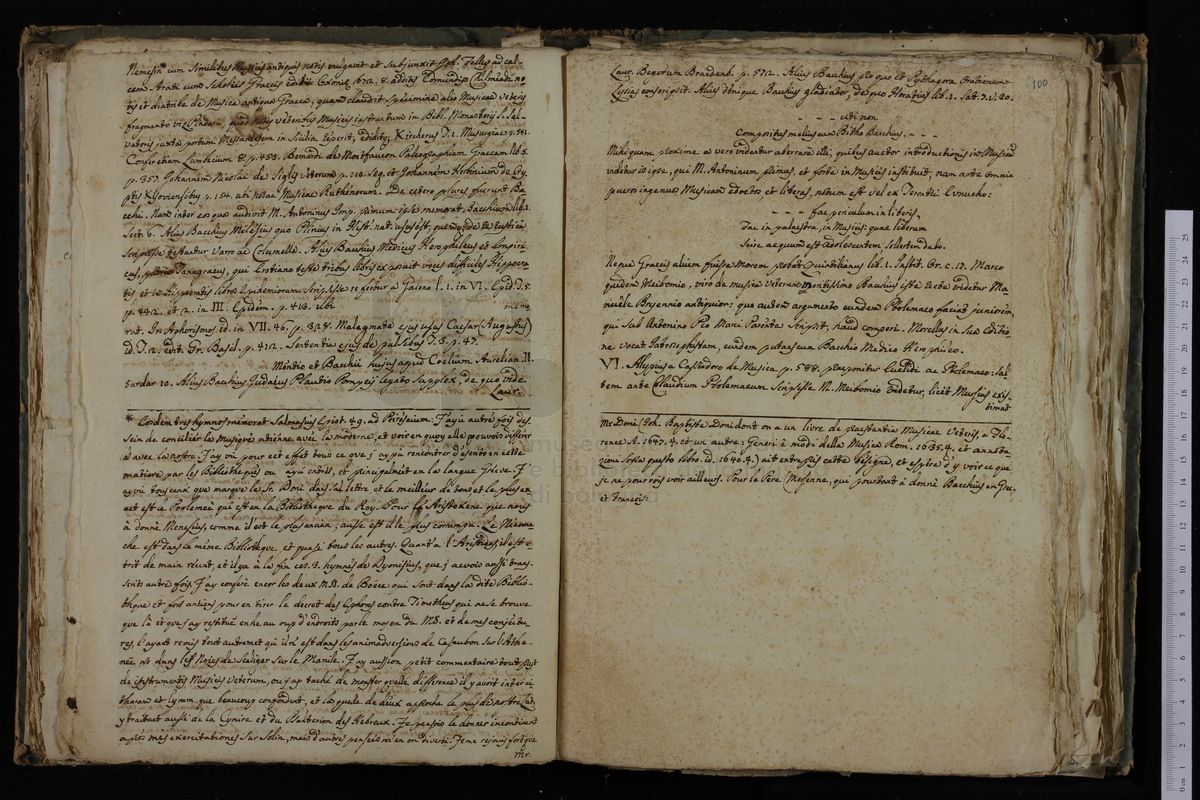 Nemesin* cum similibus Musicis antiquis notis vulgavit et subjunxit Joh. Fellus ad cal-
cem Arati cum Scholiis Graecis editi Oxoniae 1672. 8. additis Edmundi Chilmeadi no-
tis et diatriba de Musica antiqua Graeca, quam claudit specimine alio Musicae veteris
fragmento vid. Pindari, quod notis veteribus Musicis instructum in Bibl. Monasterii S. Sal-
vatoris juxta portam Messanensem in Sicilia reperit, ediditq; Kircherus T. 1. Musurgiae p. 541.
Confer etiam Lambecium p. 453. Bernardi de Montfaucon Palaeographiam Graecam lib. 5.
p. 357. Johannem Nicolai de Siglis veterum p. 110. seq. et Johannem Herbinium de Cry-
ptis Kijoviensibus p. 154. ubi notae Musicae Ruthenorum. De cetero plures fuerunt Ba-
cchi. Nam inter eos quos audivit M. Antoninus Imp. primum ipse memorat Bacchium lib. 1.
Sect. 6. Alius Bacchius Milesius quo Plinius in Hist. nat. usus est, quemq; de re rustica
scripsisse testantur Varro ac Columella. Alius Bacchius Medicus Herophileus et Empiri-
cus, patria Tanagraeus, qui Erotiano teste tribus libris exposuit voces difficiles Hippocra-
tis, et in Hippocratis libros Epidemiorum scripsisse refertur a Galeno l. 1. in VI. Epid. T. 5.
p. 442. et 2. in III. Epidem. p. 413. ubi memo
rat. In Aphorismos id. in VII. 46. p. 328. Malagmate ejus usus Caesar (Augustus)
id. T. 2. edit. Gr. Basil. p. 412. Sententia ejus de pulsibus T. 3. p. 47.
Mentio et Bacchii hujus apud Coelium Aurelian. II.
tardar. 10. Alius Bacchius Judaeus Plautio Pompeij legato supplex, de quo vide
Laur.
* Eosdem tres hymnos memorat Salmasius Epist. 49. ad Peirescium: J'ay eu autre fois des-
sein de concilier la Musique anciènne avec la moderne, et voir en quoy elle pouvoit différer
d'avec la nostre. J'ay vû pour cet effet tout ce que j'ay pû rencontrer d'escrit en cette
matière par les Bibliothèques ou imprimés, et principalment en la langue Grèce. J'
ay vû tous ceux que marque le Sr. Doni dans sa lettre, et le meilleur de tous et le plus ex-
act est le Ptolemée qui est en la Bibliotheque du Roy. Pour l'Aristoxene que nous
à donnè Meursius, comme il est le plus ancien, ausse est il le plus corrumpu. Le Nicoma-
che est dans la même Bibliothèque, et quasi tous les autres. Quant a l'Aristides, il est e-
crit de main récent, et il y a à la fin ces 3. hymnes de Dyonisius, que j'aevois aussi trans-
crits autre fois. J'ay conferè encor les deux MSS. de Boëce qui sont dans la dite Biblio-
thque et fort anciens pour en tirer le decret des Ephores contre Timotheus qui ne se trouve
que là et que j'ay restituè en beaucoup d'endroits par le moyen du MS. et de mes conjectu-
res, l'ayant remis tout autrement qu'il n'est dans les animadversions de Casaubon sur l'Athe-
nèe ni dans les Notes de Scaliger sur le Manile. J'ay aussi un petit commentaire tout prest
de instrumentis Musicis Veterum, ou j'ay tachè de monstrer quelle difference il y avoit inter ci-
tharam et lyram que beaucoup confondent, et laquelle de deux approche le plus de nostre Lut
y traitant aussi de la Cynire et du Barbiton des Hebreux. Je pensois le donner incontinent
après mes exercitationes sur Solin, mais d'autre pensées m'en ont diverti. Je me rejouis fort que
Mr.
100
Laur. Begerum Brandenb. p. 572. Alius Bacchius pro quo et Pythagora Orationem
Lysias conscripsit. Alius denique Bacchius gladiator, de quo Horatius lib. 1. Sat. 7. v. 20.
- - - uti non
Compositus melius cum Bitho Bacchius. - - -
Mihi quam proxime a vero videntur aberrare illi, quibus auctor introductionis in Musicam
videtur is ipse, qui M. Antoninum primus, et forte in Musicis instituit, nam ante omnia
pueros ingenuos Musicam edoctos, et literas, notum est vel ex Terentii Eunucho:
- - - Fac periculum in literis,
Fac in palaestra, in Musicis: quae liberum
Scire aequum est adolescentem sollertem dabo.
Neque Graecis alium fuisse morem probat Quintilianus lib. 1. Instit. Or. c. 17. Marco
quidem Meibomio, viro de musica Veterum meritissimo Bacchius iste recte videtur Ma-
nuële Bryennio antiquior: quo autem argumento eundem Ptolemaeo faciat juniorem,
qui sub Antonino Pio Marci Parente scripsit, haud comperi. Morellus in sua Editio-
ne vocat Iatrosophistam, eundem putans cum Bacchio Medico Herophileo.
VI. Alypius a Castiodoro de Musica p. 588. praeponitur Euclidi ac Ptolemaeo: sal-
tem ante Claudium Ptolemaeum scripsisse M. Meibomio videtur, licèt Mursius exis-
timat
Mr. Doni (Joh. Baptiste Doni dont on a un livre de praestantia Musicae Veteris, a Flo-
rence A. 1647. 4. et un autre: Generi è modi della Musica Rom. 1635. 4. et annota-
zioni sopra questo libro. id. 1640. 4.) ait entrepris cette besogne, et espère d'y voir ce que
je ne pourrois voir ailleurs. Pour le Père Mersenne, qui pourtant à donnè Bacchius en Gre,
et François.